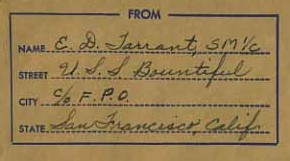 FROM
NAME E. D. Tarrant, SM 1/c
STREET U.S.S. Bountiful
CITY c/o F.P.O.
STATE San Francisco, Calif